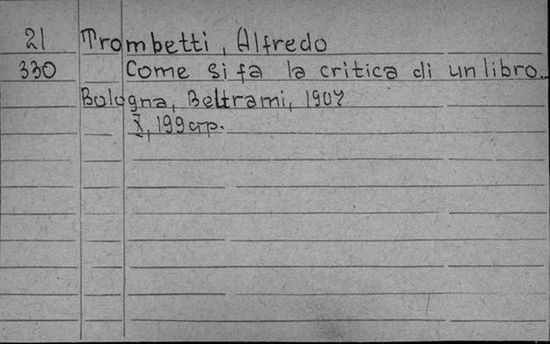 21 Trombetti, Alfredo
330 Come si fa la critica di un libro..
Bologna, Beltrami, 1907
X, 199 стр.